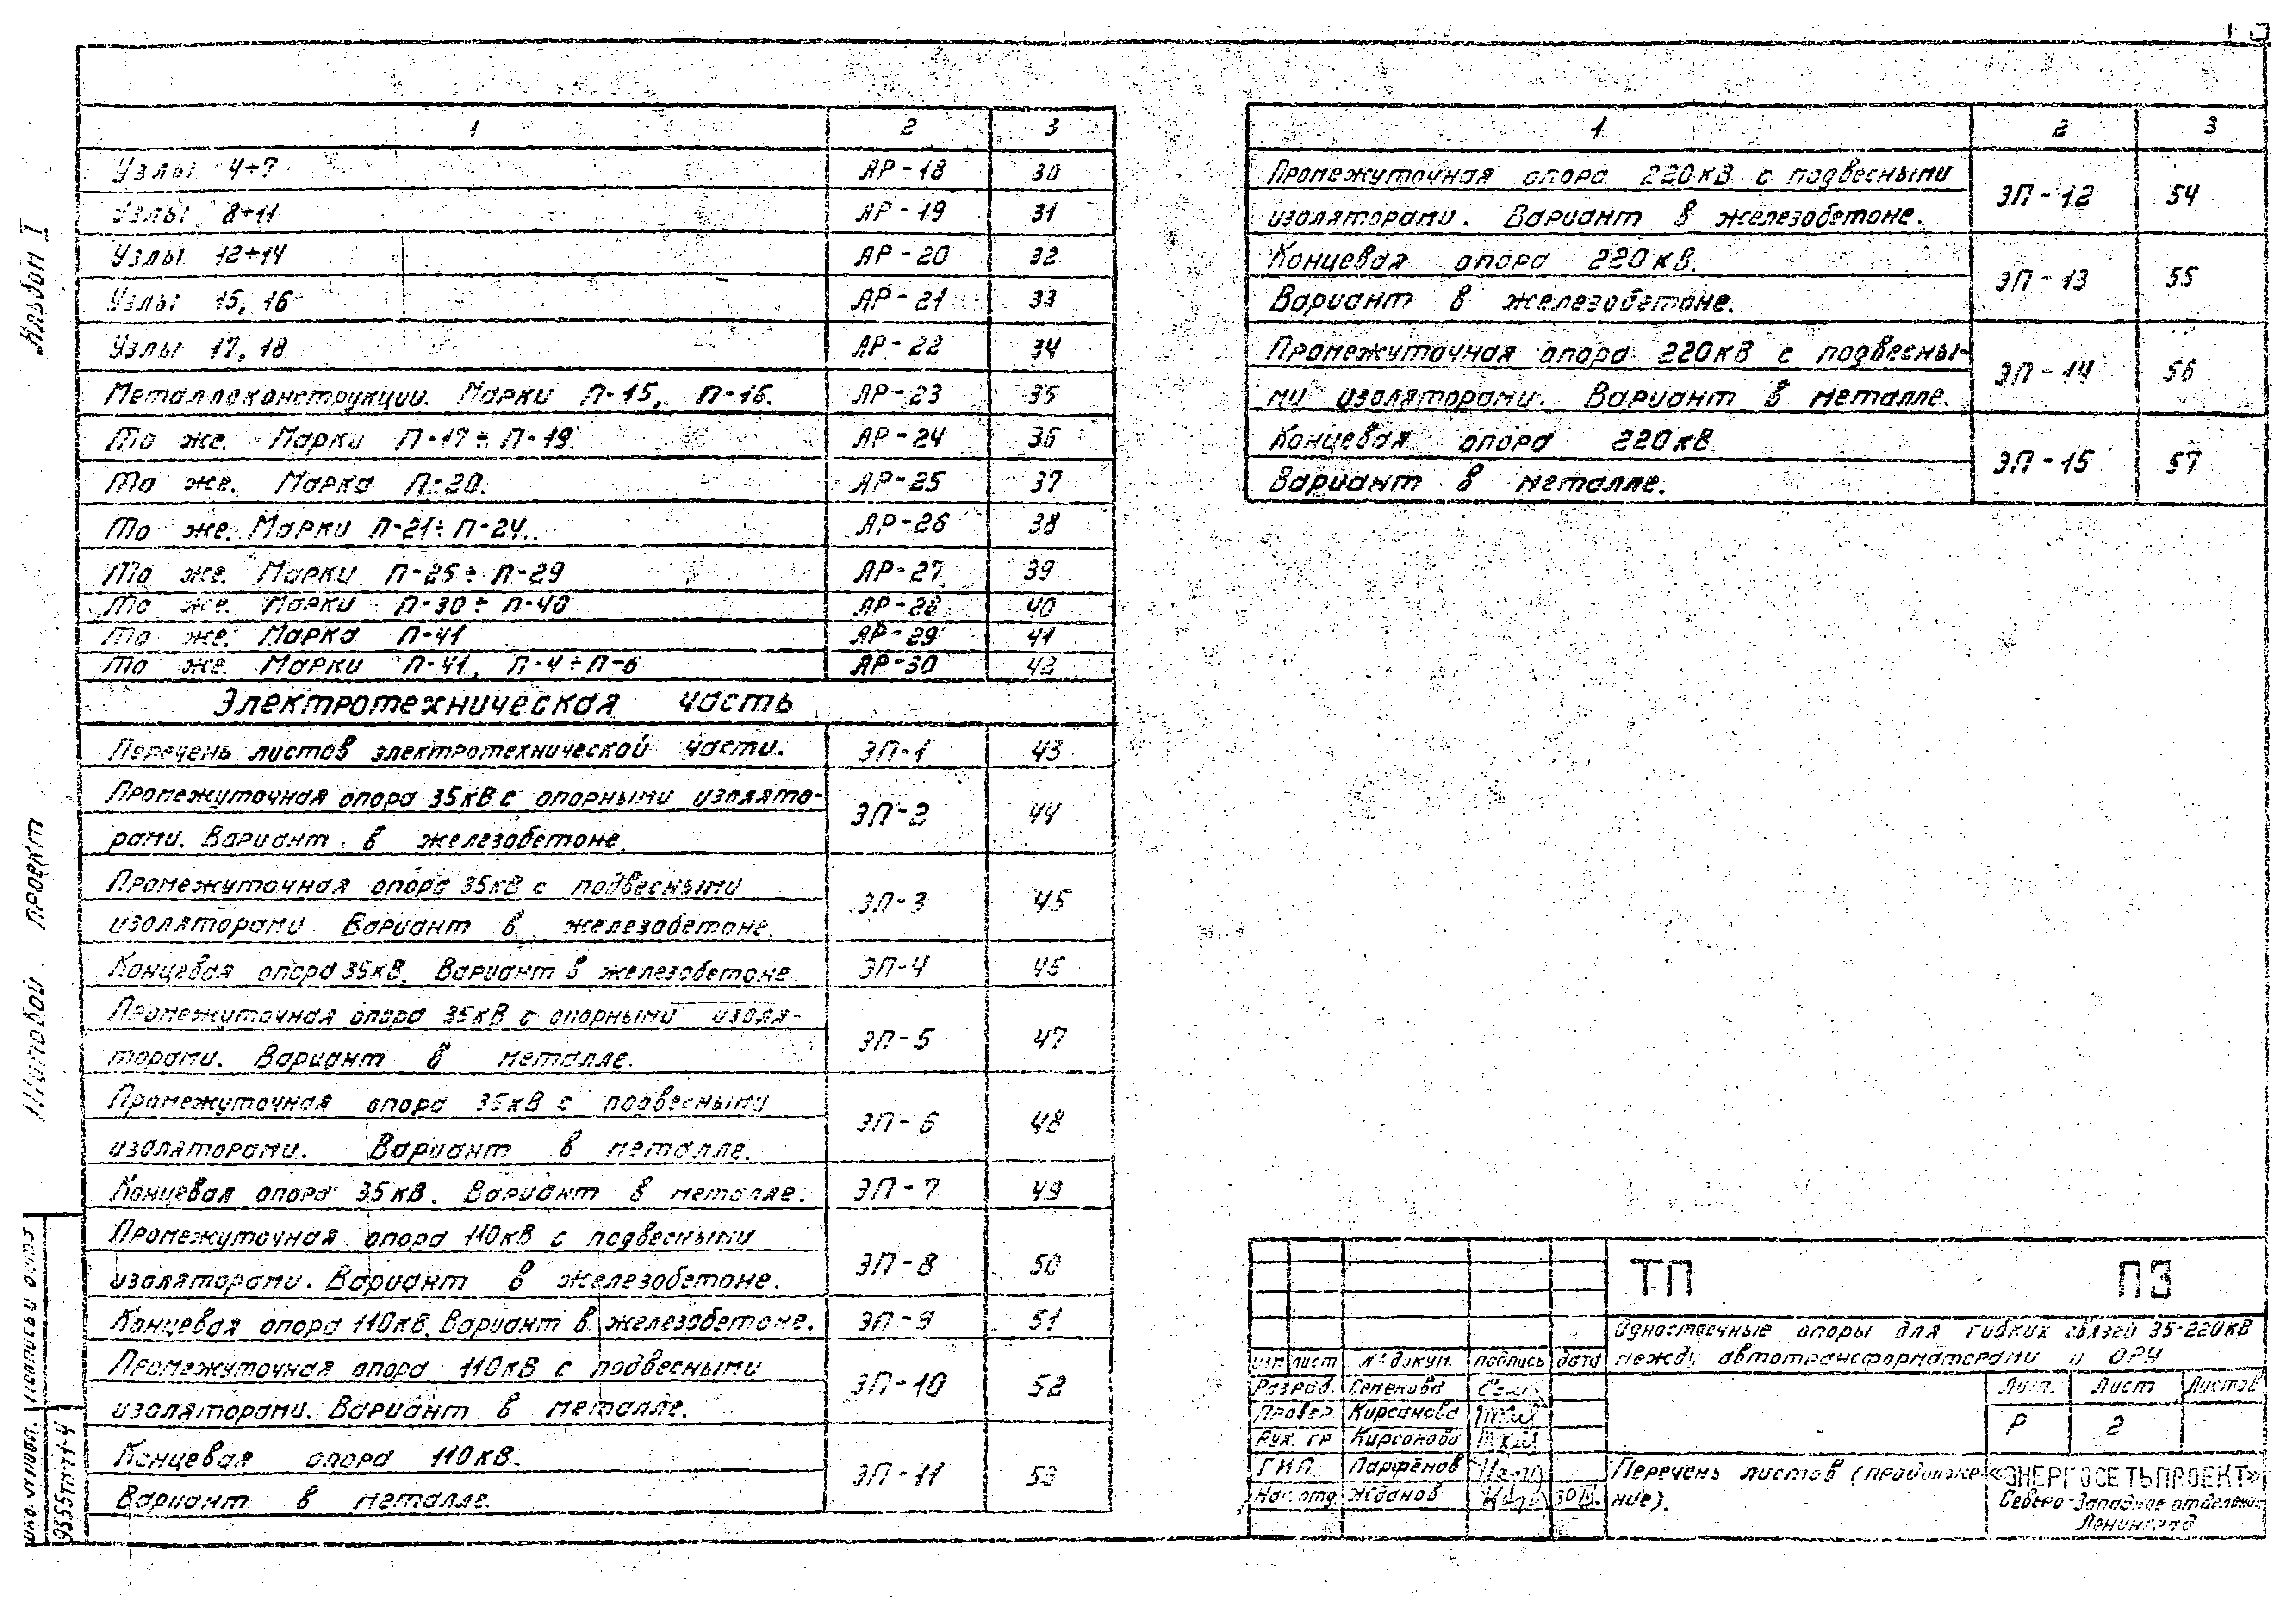 Альбом I
Типовой проект
1 2 3
Узлы 4÷7 АР-18 30
Узлы 8÷11 АР-19 31
Узлы 12÷14 АР-20 32
Узлы 15, 16 АР-21 33
Узлы 17, 18 АР-22 34
Металлоконструкции. Марки П-15, П-16. АР-23 35
То же. Марки П-17÷П-19. АР-24 36
То же. Марка П-20. АР-25 37
То же. Марки П-21÷П-24. АР-26 38
То же. Марки П-25÷П-29 АР-27 39
То же. Марки П-30÷П-40 АР-28 40
То же. Марка П-41 АР-29 41
То же. Марки П-41, П-4÷П-6 АР-30 42
Электротехническая часть
Перечень листов электротехнической части. ЭП-1 43
Промежуточная опора 35кВ с опорными изолято-
рами. Вариант в железобетоне. ЭП-2 44
Промежуточная опора 35кВ с подвесными
изоляторами. Вариант в железобетоне. ЭП-3 45
Концевая опора 35кВ. Вариант в железобетоне. ЭП-4 46
Промежуточная опора 35кВ с опорными изоля-
торами. Вариант в металле. ЭП-5 47
Промежуточная опора 35кВ с подвесными
изоляторами. Вариант в металле. ЭП-6 48
Концевая опора 35кВ. Вариант в металле. ЭП-7 49
Промежуточная опора 110кВ с подвесными
изоляторами. Вариант в железобетоне. ЭП-8 50
Концевая опора 110кВ. Вариант в железобетоне. ЭП-9 51
Промежуточная опора 110кВ с подвесными
изоляторами. Вариант в металле. ЭП-10 52
Концевая опора 110кВ.
Вариант в металле. ЭП-11 53
1 2 3
Промежуточная опора 220кВ с подвесными
изоляторами. Вариант в железобетоне. ЭП-12 54
Концевая опора 220кВ.
Вариант в железобетоне. ЭП-13 55
Промежуточная опора 220кВ с подвесны-
ми изоляторами. Вариант в металле. ЭП-14 56
Концевая опора 220кВ
Вариант в металле. ЭП-15 57
ТП ПЗ
Одностоечные опоры для гибких связей 35-220кВ
между автотрансформаторами и ОРУ
Изм лист № докум. подпись дата
Разраб. Семенова
Провер. Кирсанова
Рук. гр Кирсанова
ГИП Парфёнов
Нач. отд Жданов
Лит. Лист Листов
Р 2
Перечень листов (продолже
ние).
«ЭНЕРГОСЕТЬПРОЕКТ»
Северо-Западное отделение
Ленинград
Инв. № подл. Подпись и дата
9555тм-т1-4